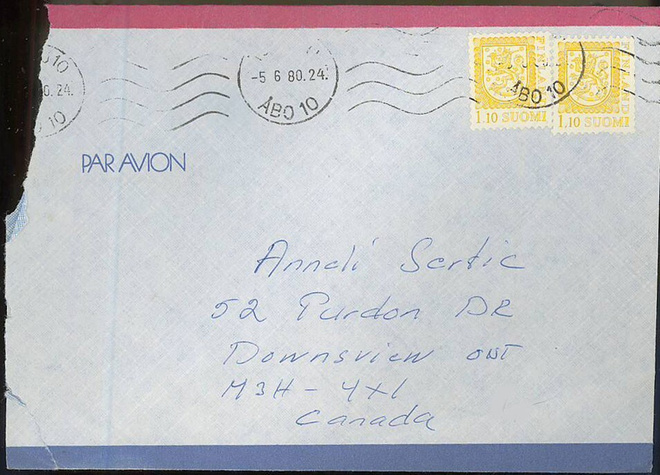 10
80.24.
10
-5 6 80.24.
ÅBO 10
ÅBO 10
1,10 SUOMI
1,10 SUOMI
PAR AVION
Anneli Sertic
52 Purdon DR
Downsview ONT
M3H - 4X1
Canada